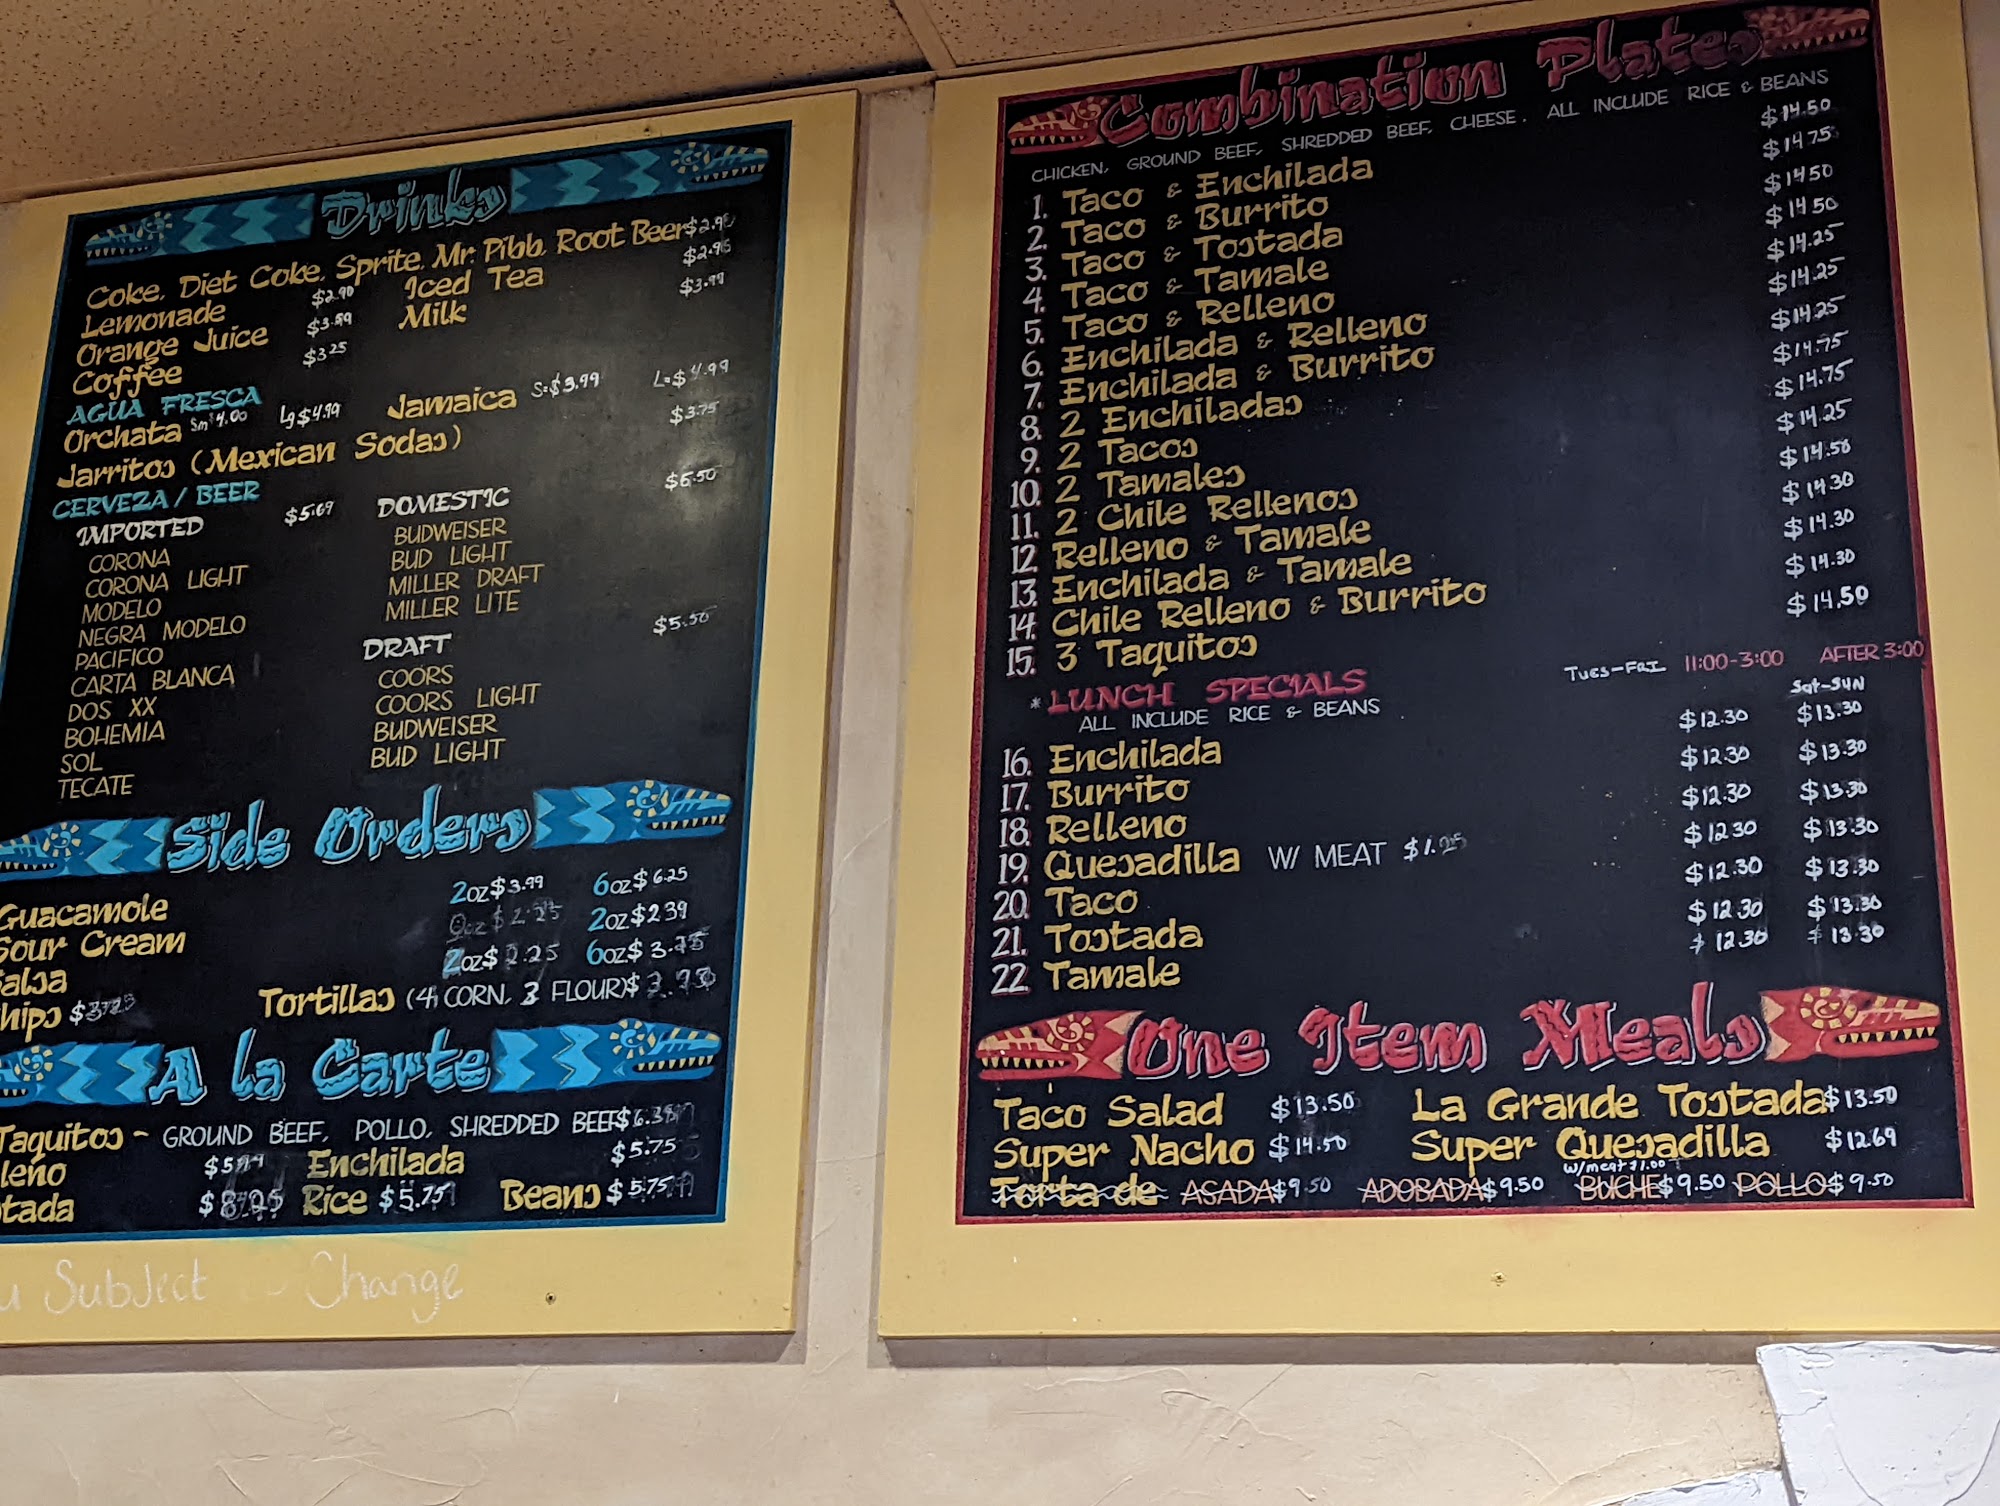 Drinks
Coke, Diet Coke, Sprite, Mr. Pibb, Root Beer $2.90
Lemonade $2.90 Iced Tea $2.95
Orange Juice $3.99 Milk $3.99
Coffee $3.25
AGUA FRESCA
Orchata Sm $4.00 Lg $4.99 Jamaica S=$3.99 L=$4.99
Jarritos (Mexican Sodas) $3.75
CERVEZA / BEER
IMPORTED $5.69
CORONA
CORONA LIGHT
MODELO
NEGRA MODELO
PACIFICO
CARTA BLANCA
DOS XX
BOHEMIA
SOL
TECATE
DOMESTIC
BUDWEISER
BUD LIGHT
MILLER DRAFT
MILLER LITE
DRAFT $5.50
COORS
COORS LIGHT
BUDWEISER
BUD LIGHT
Side Orders
Guacamole 2oz $3.99 6oz $6.25
Sour Cream 2oz $2.39
2oz 6oz
Tortillas (4 CORN, FLOUR)
A la Carte
Taquitos - GROUND BEEF, POLLO, SHREDDED BEEF
Enchilada $5.75
Rice $5.75 Beans $5.75
Subject Change
Combination Plates
CHICKEN, GROUND BEEF, SHREDDED BEEF, CHEESE. ALL INCLUDE RICE & BEANS
1. Taco & Enchilada $14.50
2. Taco & Burrito $14.75
3. Taco & Tostada $14.50
4. Taco & Tamale $14.50
5. Taco & Relleno $14.25
6. Enchilada & Relleno $14.25
7. Enchilada & Burrito $14.25
8. 2 Enchiladas $14.75
9. 2 Tacos $14.75
10. 2 Tamales $14.25
11. 2 Chile Rellenos $14.50
12. Relleno & Tamale $14.30
13. Enchilada & Tamale $14.30
14. Chile Relleno & Burrito $14.30
15. 3 Taquitos $14.50
Tues-Fri 11:00-3:00 AFTER 3:00
* LUNCH SPECIALS Sat-SUN
ALL INCLUDE RICE & BEANS
16. Enchilada $12.30 $13.30
17. Burrito $12.30 $13.30
18. Relleno $12.30 $13.30
19. Quesadilla W/ MEAT $1.25 $12.30 $13.30
20. Taco $12.30 $13.30
21. Tostada $12.30 $13.30
22. Tamale $12.30 $13.30
One Item Meals
Taco Salad $13.50 La Grande Tostada $13.50
Super Nacho $14.50 Super Quesadilla $12.69
w/meat $1.00
Torta de ASADA $9.50 ADOBADA $9.50 BUCHE $9.50 POLLO $9.50